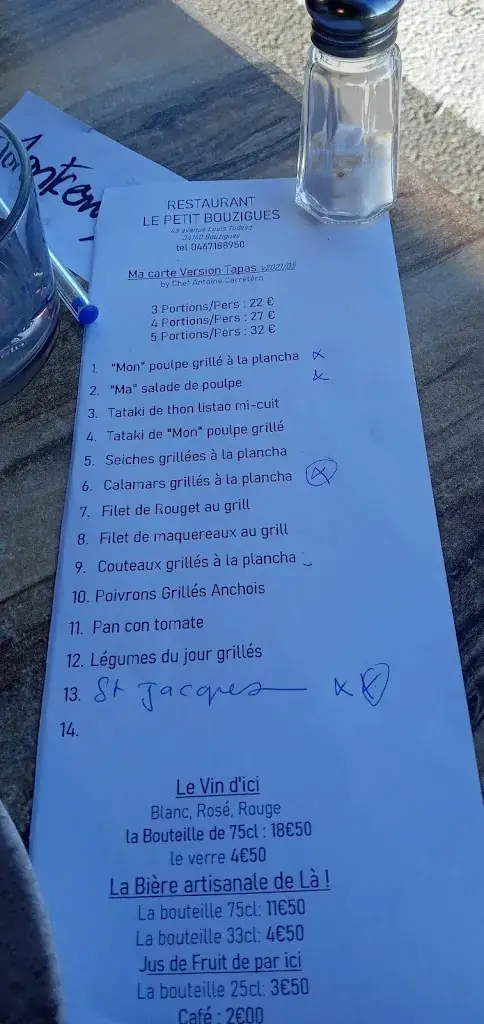 RESTAURANT
LE PETIT BOUZIGUES
34140 Bouzigues
tel 0467188950
Ma carte Version Tapas v2021/05
by Chef Antoine Carretéro
3 Portions/Pers : 22 €
4 Portions/Pers : 27 €
5 Portions/Pers : 32 €
1. "Mon" poulpe grillé à la plancha x
2. "Ma" salade de poulpe x
3. Tataki de thon listao mi-cuit
4. Tataki de "Mon" poulpe grillé
5. Seiches grillées à la plancha
6. Calamars grillés à la plancha x
7. Filet de Rouget au grill
8. Filet de maquereaux au grill
9. Couteaux grillés à la plancha
10. Poivrons Grillés Anchois
11. Pan con tomate
12. Légumes du jour grillés
13. St Jacques x x
14.
Le Vin d'ici
Blanc, Rosé, Rouge
la Bouteille de 75cl : 18€50
le verre 4€50
La Bière artisanale de Là !
La bouteille 75cl: 11€50
La bouteille 33cl: 4€50
Jus de Fruit de par ici
La bouteille 25cl: 3€50
Café : 2€00